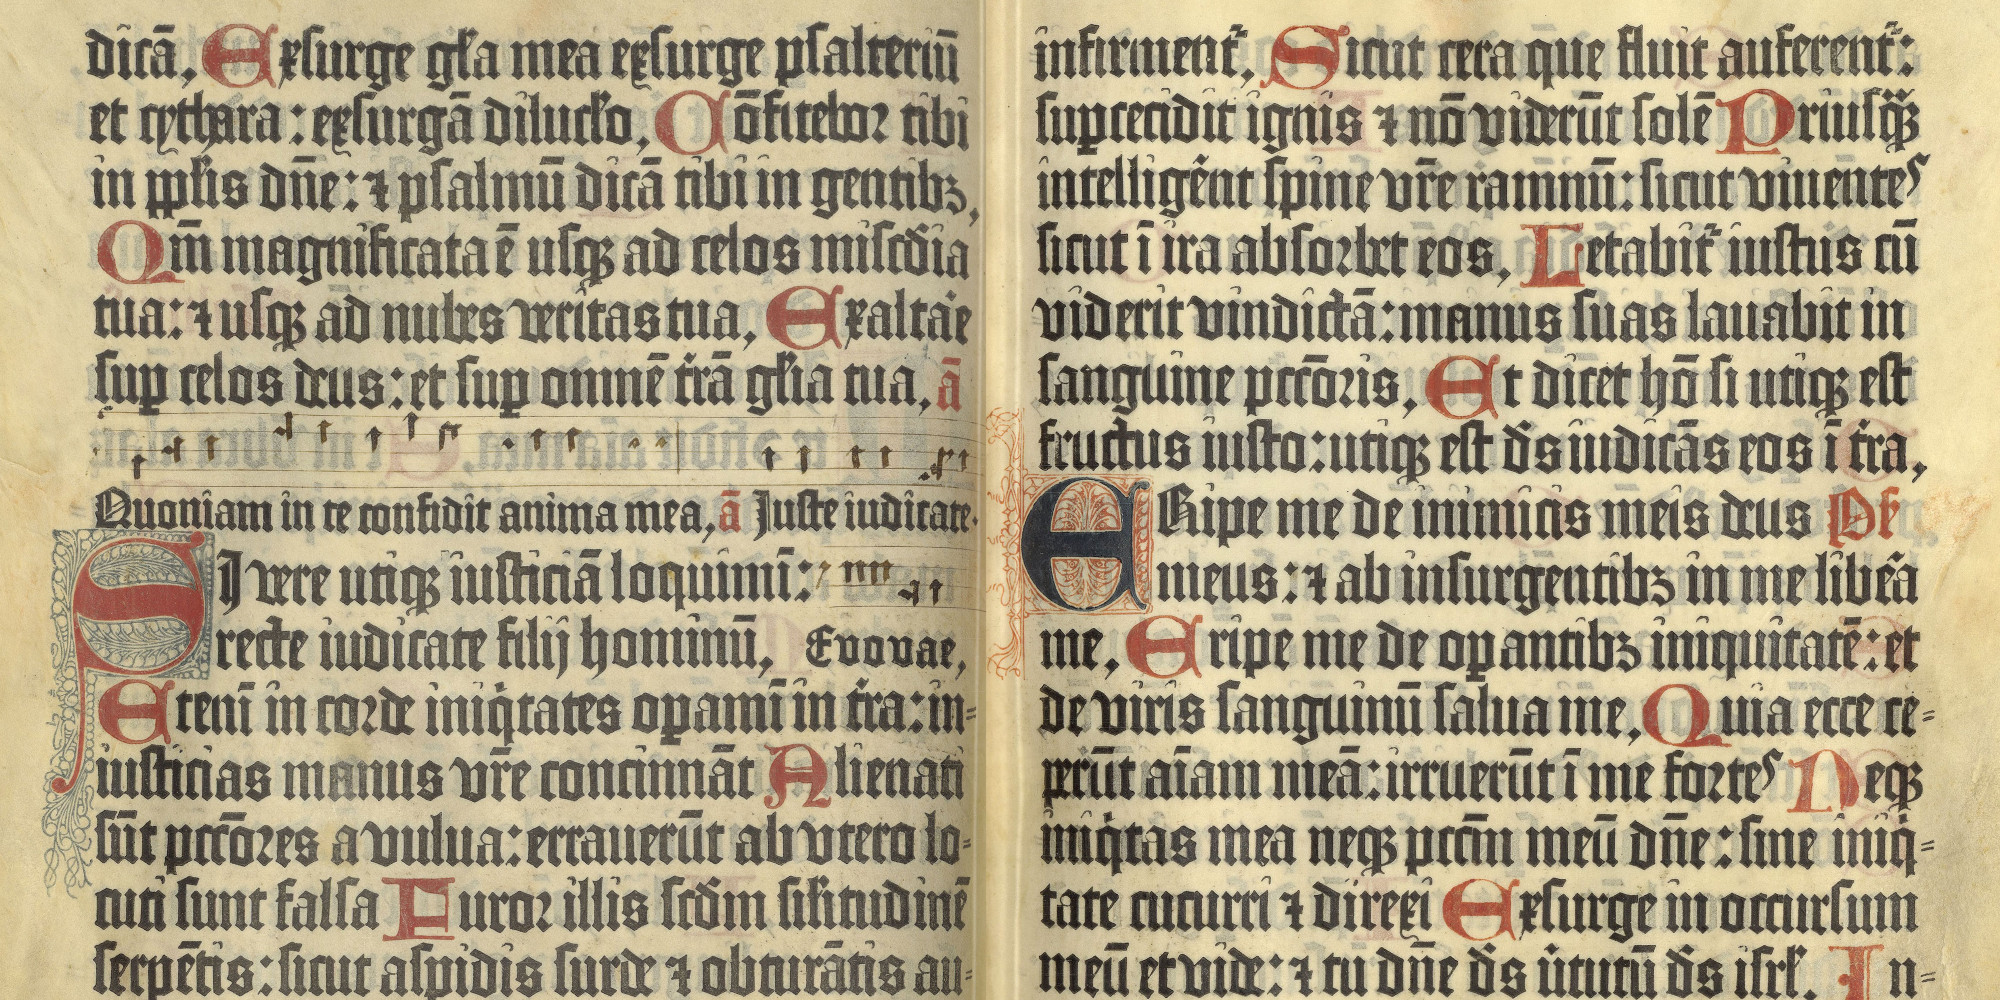 dicā, Exsurge gl̄a mea exsurge psalteriū
et cythara : exsurgā diluc̄lo, Cōfitebor tibi
in pp̄lis dn̄e: ⁊ psalmū dicā tibi in gentibꝫ,
Qm̄ magnificata ē usqꝫ ad celos misc̄dia
tua: ⁊ usqꝫ ad nubes veritas tua, Exaltāe
suꝑ celos deus: et suꝑ omnē t̄rā gl̄ia tua, ā
Quoniam in te confidit anima mea, ā Juste iudicate.
SI vere utiqꝫ iusticiā loquimī:
recte iudicate filij hominū, Evovae,
Etenī in corde iniq̇tates oꝑamī in t̄ra: in=
iusticias manus vr̄e concinnāt Alienati
sūt pccōres a vulua: errauerūt ab vtero lo=
cuti sunt falsa Furor illis scd̄m sil̄itudinē
serpētis: sicut aspidis surde ⁊ obturātis au=
infirment᷑, Sicut cera que fluit auferent᷑:
suꝑcecidit ignis ⁊ nō viderūt solē Priusqꝫ̄
intelligēnt spine vr̄e ramnū: sicut viuentes
sicut ī ira absorbet eos, Letabit᷑ iustus cū
viderit vindictā: manus suas lauabit in
sanguine pccōris, Et dicet hō si utiqꝫ est
fructus iusto: utiqꝫ est d̄s iudicās eos ī t̄ra,
ERipe me de inimicis meis deus Ps̄
meus: ⁊ ab insurgentibꝫ in me libēa
me, Eripe me de oꝑantibꝫ iniquitatē: et
de viris sanguinū salua me, Quia ecce ce=
perūt aīam meā: irruerūt ī me fortes Neqꝫ
iniq̇tas mea neqꝫ pccm̄ meū dn̄e: sine iniq̇=
tate cucurri ⁊ direxi Exsurge in occursum
meū et vide: ⁊ tu dn̄e d̄s u̇tutū d̄s isrl̄. In=